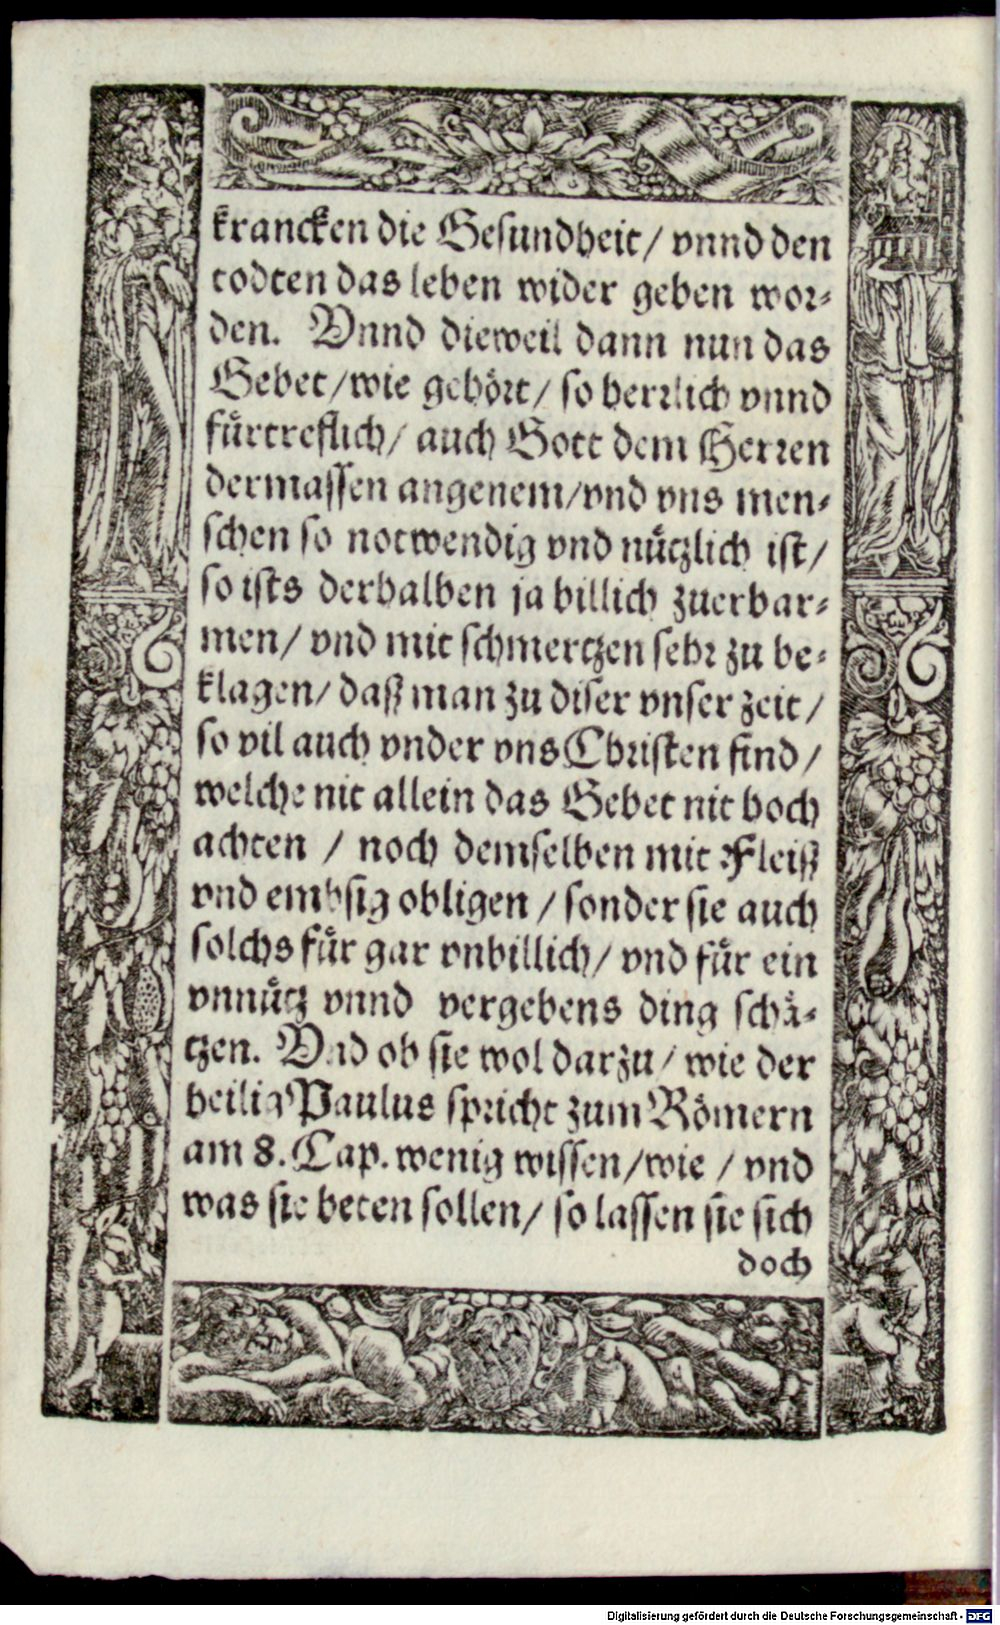 krancken die Gesundheit/ vnnd den
todten das leben wider geben wor-
den. Vnnd dieweil dann nun das
Gebet/wie gehört/ so herrlich vnnd
fürtreflich/ auch Gott dem Herren
dermassen angenem/vnd vns men-
schen so notwendig vnd nützlich ist/
so ists derhalben ja billich zuerbar-
men/ vnd mit schmertzen sehr zu be-
klagen/ daß man zu diser vnser zeit/
so vil auch vnder vns Christen find/
welche nit allein das Gebet nit hoch
achten / noch demselben mit Fleiß
vnd embsig obligen / sonder sie auch
solchs für gar vnbillich/ vnd für ein
vnnütz vnnd vergebens ding schä-
tzen. Vnd ob sie wol darzu/ wie der
heilig Paulus spricht zum Römern
am 8. Cap. wenig wissen/wie / vnd
was sie beten sollen/ so lassen sie sich
doch
Digitalisierung gefördert durch die Deutsche Forschungsgemeinschaft - DFG